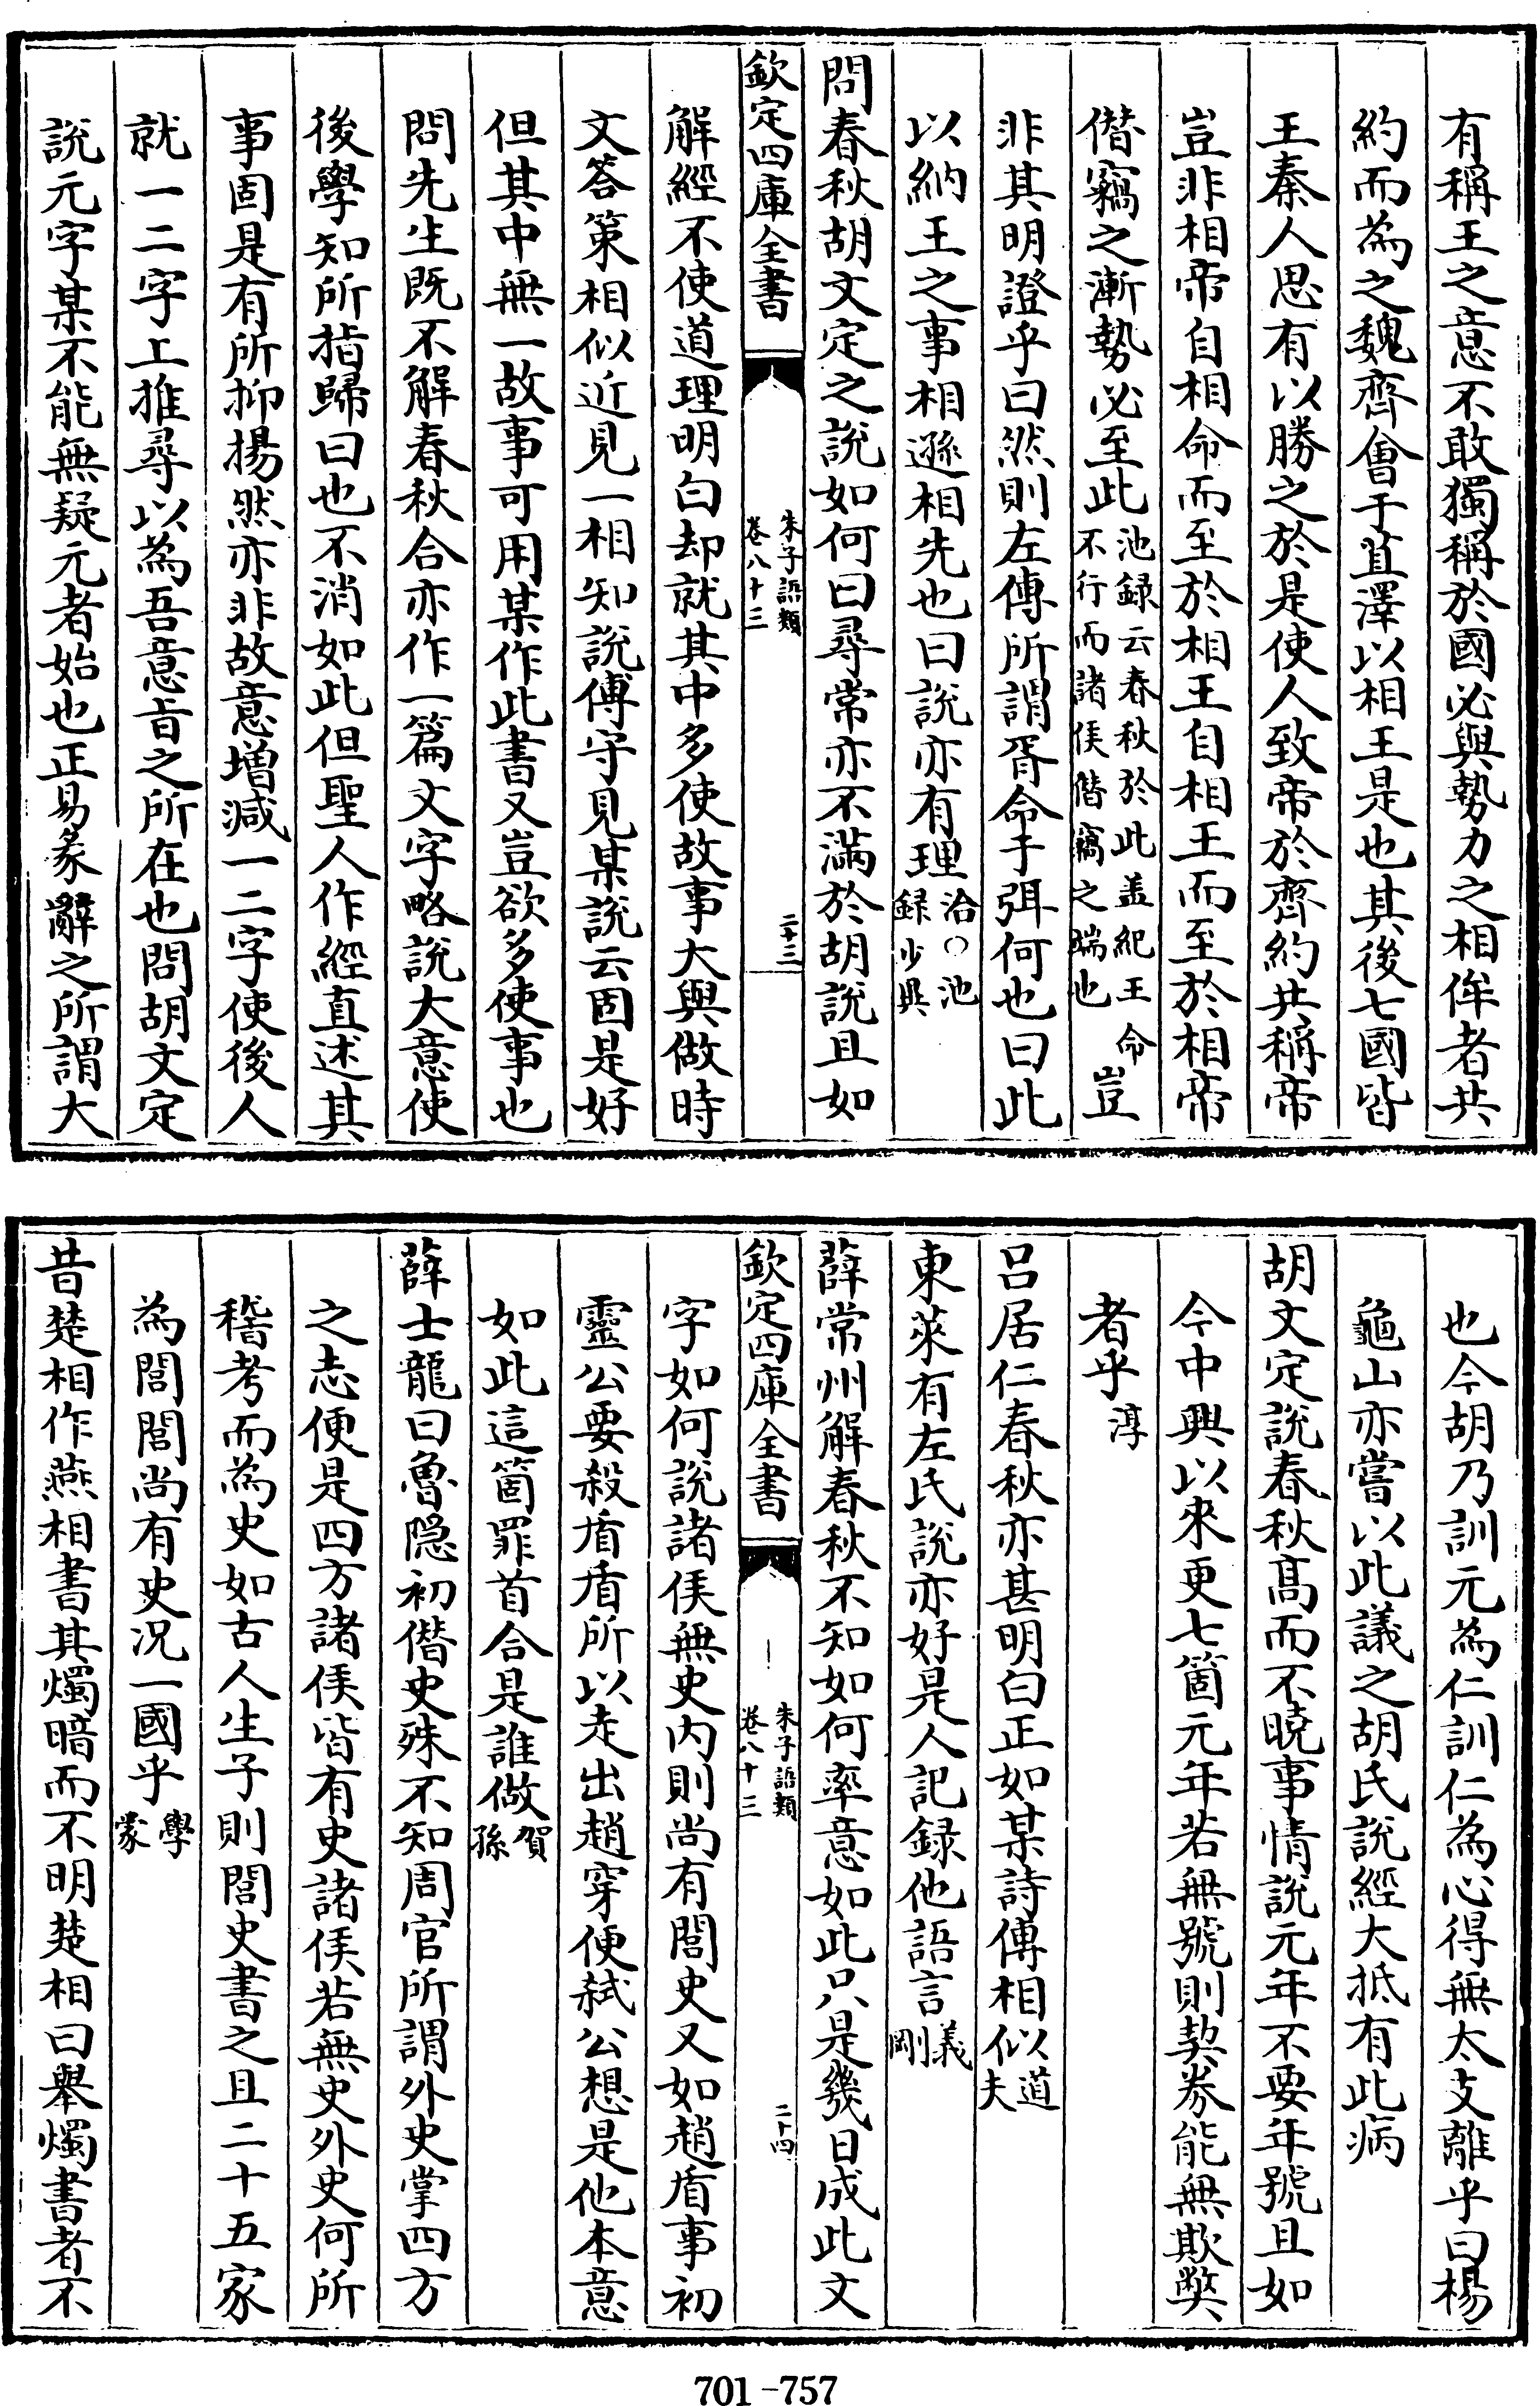 有稱王之意不敢獨稱於國必與勢力之相侔者共
約而為之魏齊會于苴澤以相王是也其後七國皆
王秦人思有以勝之於是使人致帝於齊約共稱帝
豈非相帝自相命而至於相王自相王而至於相帝
僭竊之漸勢必至此池録云春秋於此盖紀王命不行而諸侯僭竊之端也豈
非其明證乎曰然則左傳所謂胥命于弭何也曰此
以納王之事相遜相先也曰說亦有理洽○池録少異
問春秋胡文定之說如何曰尋常亦不滿於胡說且如
欽定四庫全書 朱子語類 卷八十三 二十三
解經不使道理明白却就其中多使故事大與做時
文答策相似近見一相知說傅守見某說云固是好
但其中無一故事可用某作此書又豈欲多使事也
問先生既不解春秋合亦作一篇文字略說大意使
後學知所指歸曰也不消如此但聖人作經直述其
事固是有所抑揚然亦非故意增減一二字使後人
就一二字上推尋以為吾意旨之所在也問胡文定
說元字某不能無疑元者始也正易彖辭之所謂大
也今胡乃訓元為仁訓仁為心得無太支離乎曰楊
龜山亦嘗以此議之胡氏說經大抵有此病
胡文定說春秋髙而不曉事情說元年不要年號且如
今中興以來更七箇元年若無號則契券能無欺獘
者乎淳
呂居仁春秋亦甚明白正如某詩傳相似道夫
東萊有左氏說亦好是人記録他語言義剛
薛常州解春秋不知如何率意如此只是幾日成此文
欽定四庫全書 朱子語類 卷八十三 二十四
字如何說諸侯無史内則尚有閭史又如趙盾事初
靈公要殺盾盾所以走出趙穿便弑公想是他本意
如此這箇罪首合是誰做賀孫
薛士龍曰魯隐初僭史殊不知周官所謂外史掌四方
之志便是四方諸侯皆有史諸侯若無史外史何所
稽考而為史如古人生子則閭史書之且二十五家
為閭閭尚有史况一國乎學蒙
昔楚相作燕相書其燭暗而不明楚相曰舉燭書者不
701-757